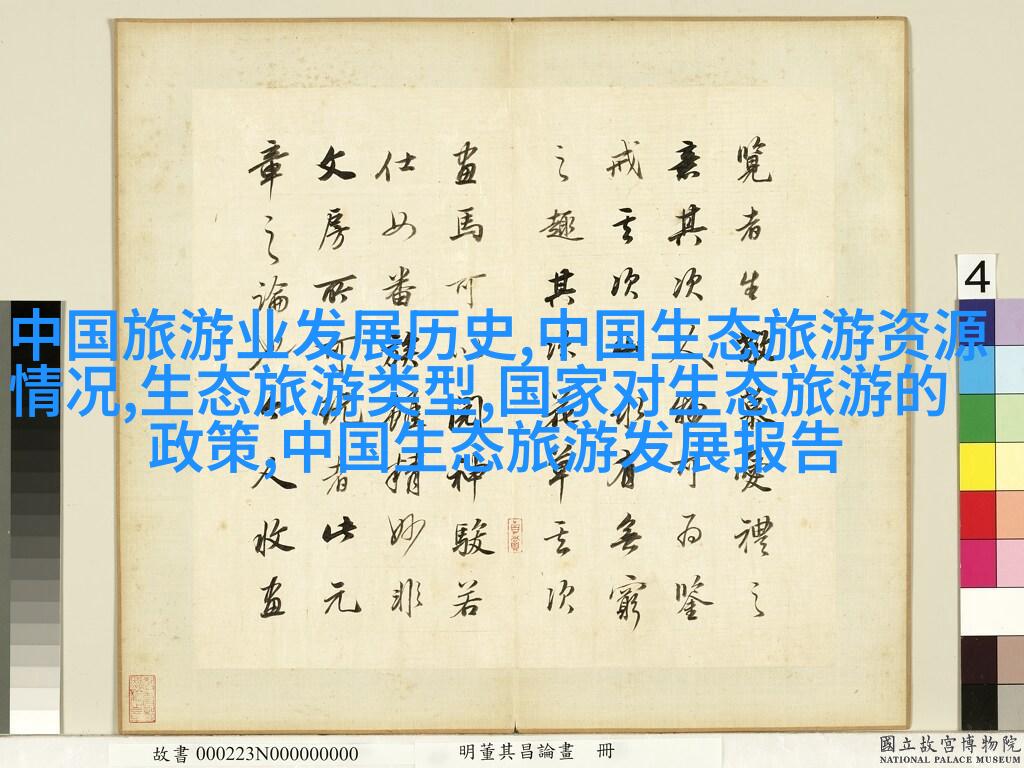 中国旅游业发展历史,中国生态旅游资源
情况,生态旅游类型,国家对生态旅游的
政策,中国生态旅游发展报告
覽者生敬慕愛禮之
意其次人物可為鑒
戒其次山水有無窮
之趣其次花草其次
畫馬可以閱神駿若
仕女番族雖精妙非
文房所可玩者此元
章之論也今人收畫
4
故書 000223N000000000
明董其昌論畫 冊
國立故宮博物院
NATIONAL PALACE MUSEUM